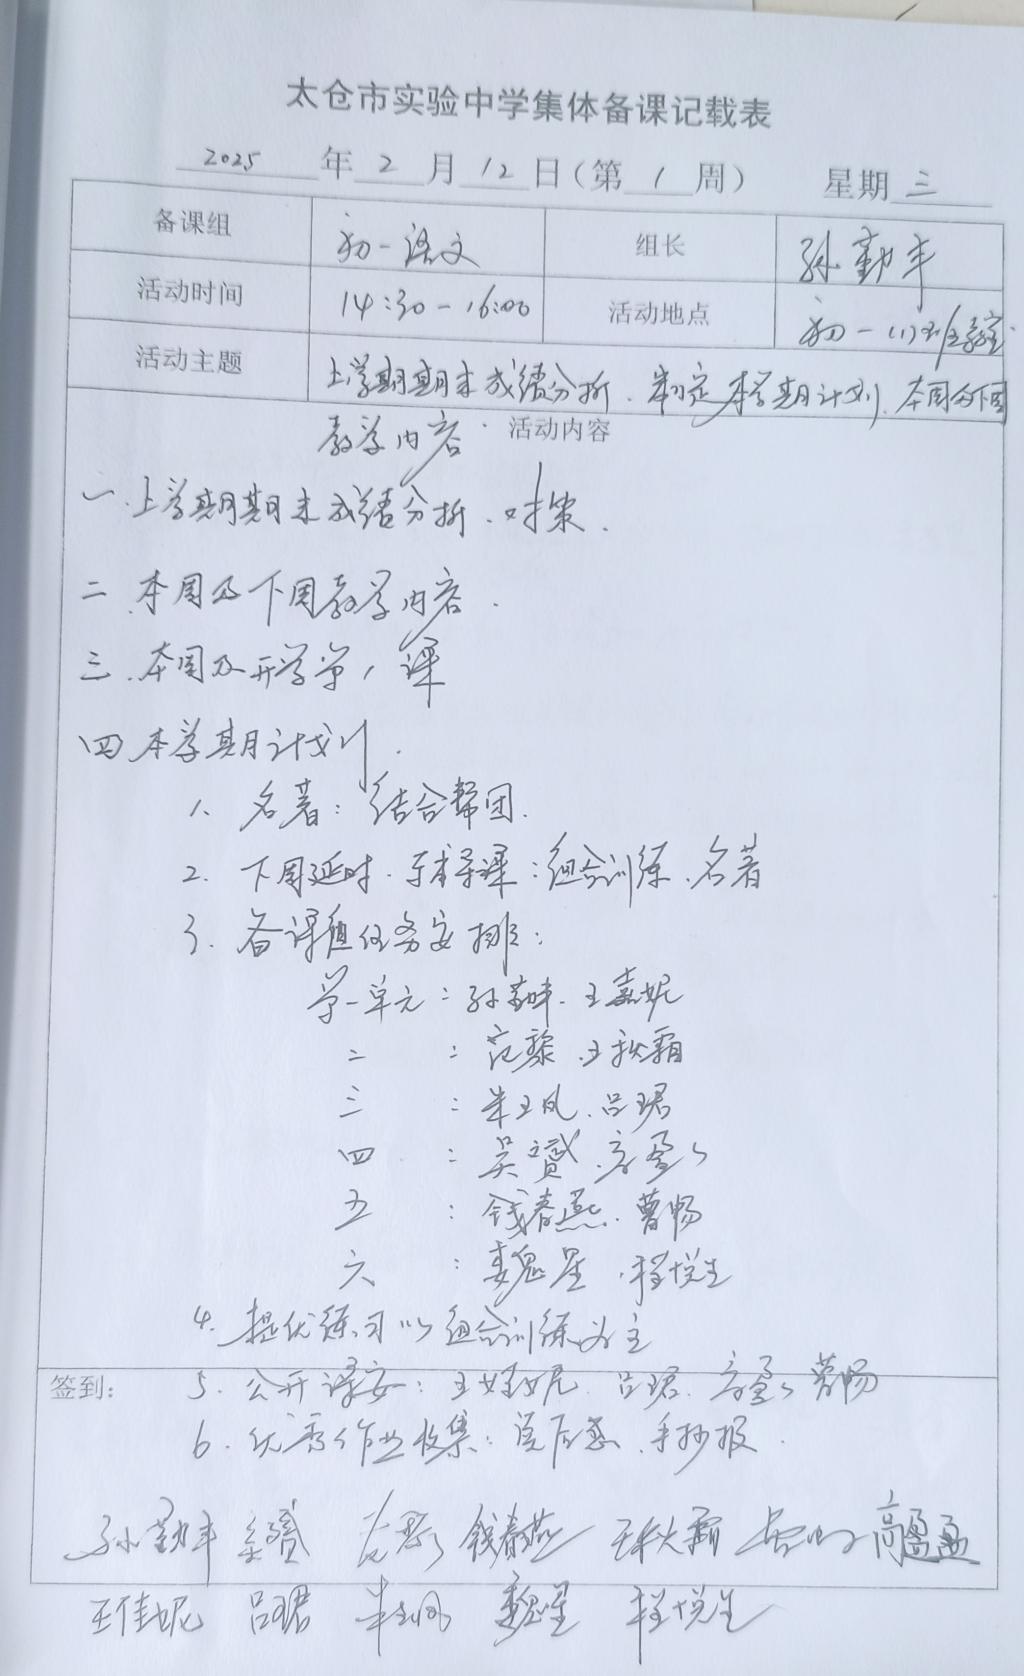 太仓市实验中学集体备课记载表
2025年2月12日(第1周) 星期三
备课组 初一语文 组长 孙勤丰
活动时间 14:30-16:00 活动地点 初一(1)班教室
活动主题 上学期期末成绩分析、制定本学期计划、本周及下周
教学内容. 活动内容
一.上学期期末成绩分析、对策.
二.本周及下周教学内容.
三.本周及开学第1课
四.本学期计划.
1、名著:结合帮团.
2.下周延时、课:组合训练、名著
3.备课组任务安排:
第一单元:孙勤丰、王嘉妮
二:范黎、王秋霜
三:朱玉凤、吕珺
四:吴赟、高盈盈
五:钱春燕、曹畅
六:魏星、程悦生
4.提优练习以组合训练为主
签到: 5.公开课安:王妮、吕珺、高盈盈、曹畅
6.优秀作业收集:读后感、手抄报.
孙勤丰 吴赟 范黎 钱春燕 王秋霜 高盈盈
王佳妮 吕珺 朱玉凤 魏星 程悦生